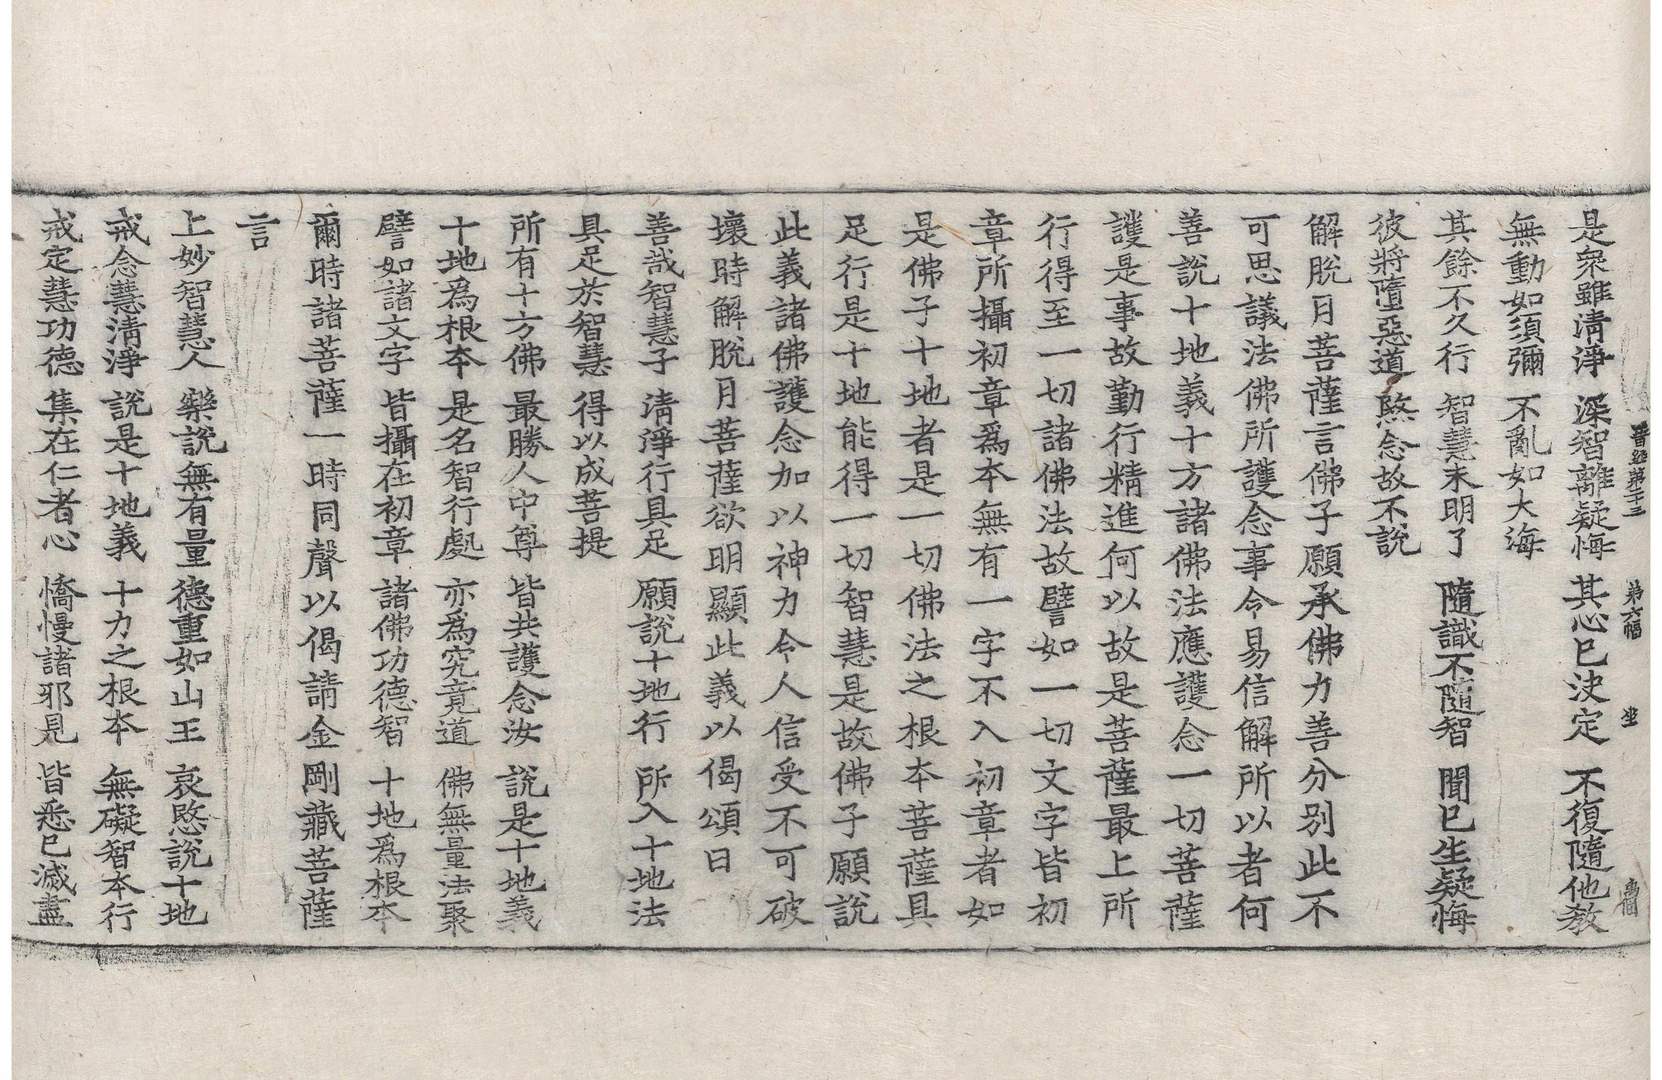 晉經第二十三　第六幅　坐
是衆雖淸淨　深智離疑悔　其心已決定　不復隨他敎
無動如須彌　不亂如大海
其餘不久行　智慧未明了　隨識不隨智　聞已生疑悔
彼將墮惡道　愍念故不說
解脫月菩薩言佛子願承佛力善分別此不
可思議法佛所護念事令易信解所以者何
善說十地義十方諸佛法應護念一切菩薩
護是事故勤行精進何以故是菩薩最上所
行得至一切諸佛法故譬如一切文字皆初
章所攝初章爲本無有一字不入初章者如
是佛子十地者是一切佛法之根本菩薩具
足行是十地能得一切智慧是故佛子願說
此義諸佛護念加以神力令人信受不可破
壞時解脫月菩薩欲明顯此義以偈頌曰
善哉智慧子　淸淨行具足　願說十地行　所入十地法
具足於智慧　得以成菩提
所有十方佛　最勝人中尊　皆共護念汝　說是十地義
十地爲根本　是名智行處　亦爲究竟道　佛無量法聚
譬如諸文字　皆攝在初章　諸佛功德智　十地爲根本
爾時諸菩薩一時同聲以偈請金剛藏菩薩
言
上妙智慧人　樂說無有量　德重如山王　哀愍說十地
戒念慧淸淨　說是十地義　十力之根本　無礙智本行
戒定慧功德　集在仁者心　憍慢諸邪見　皆悉已滅盡